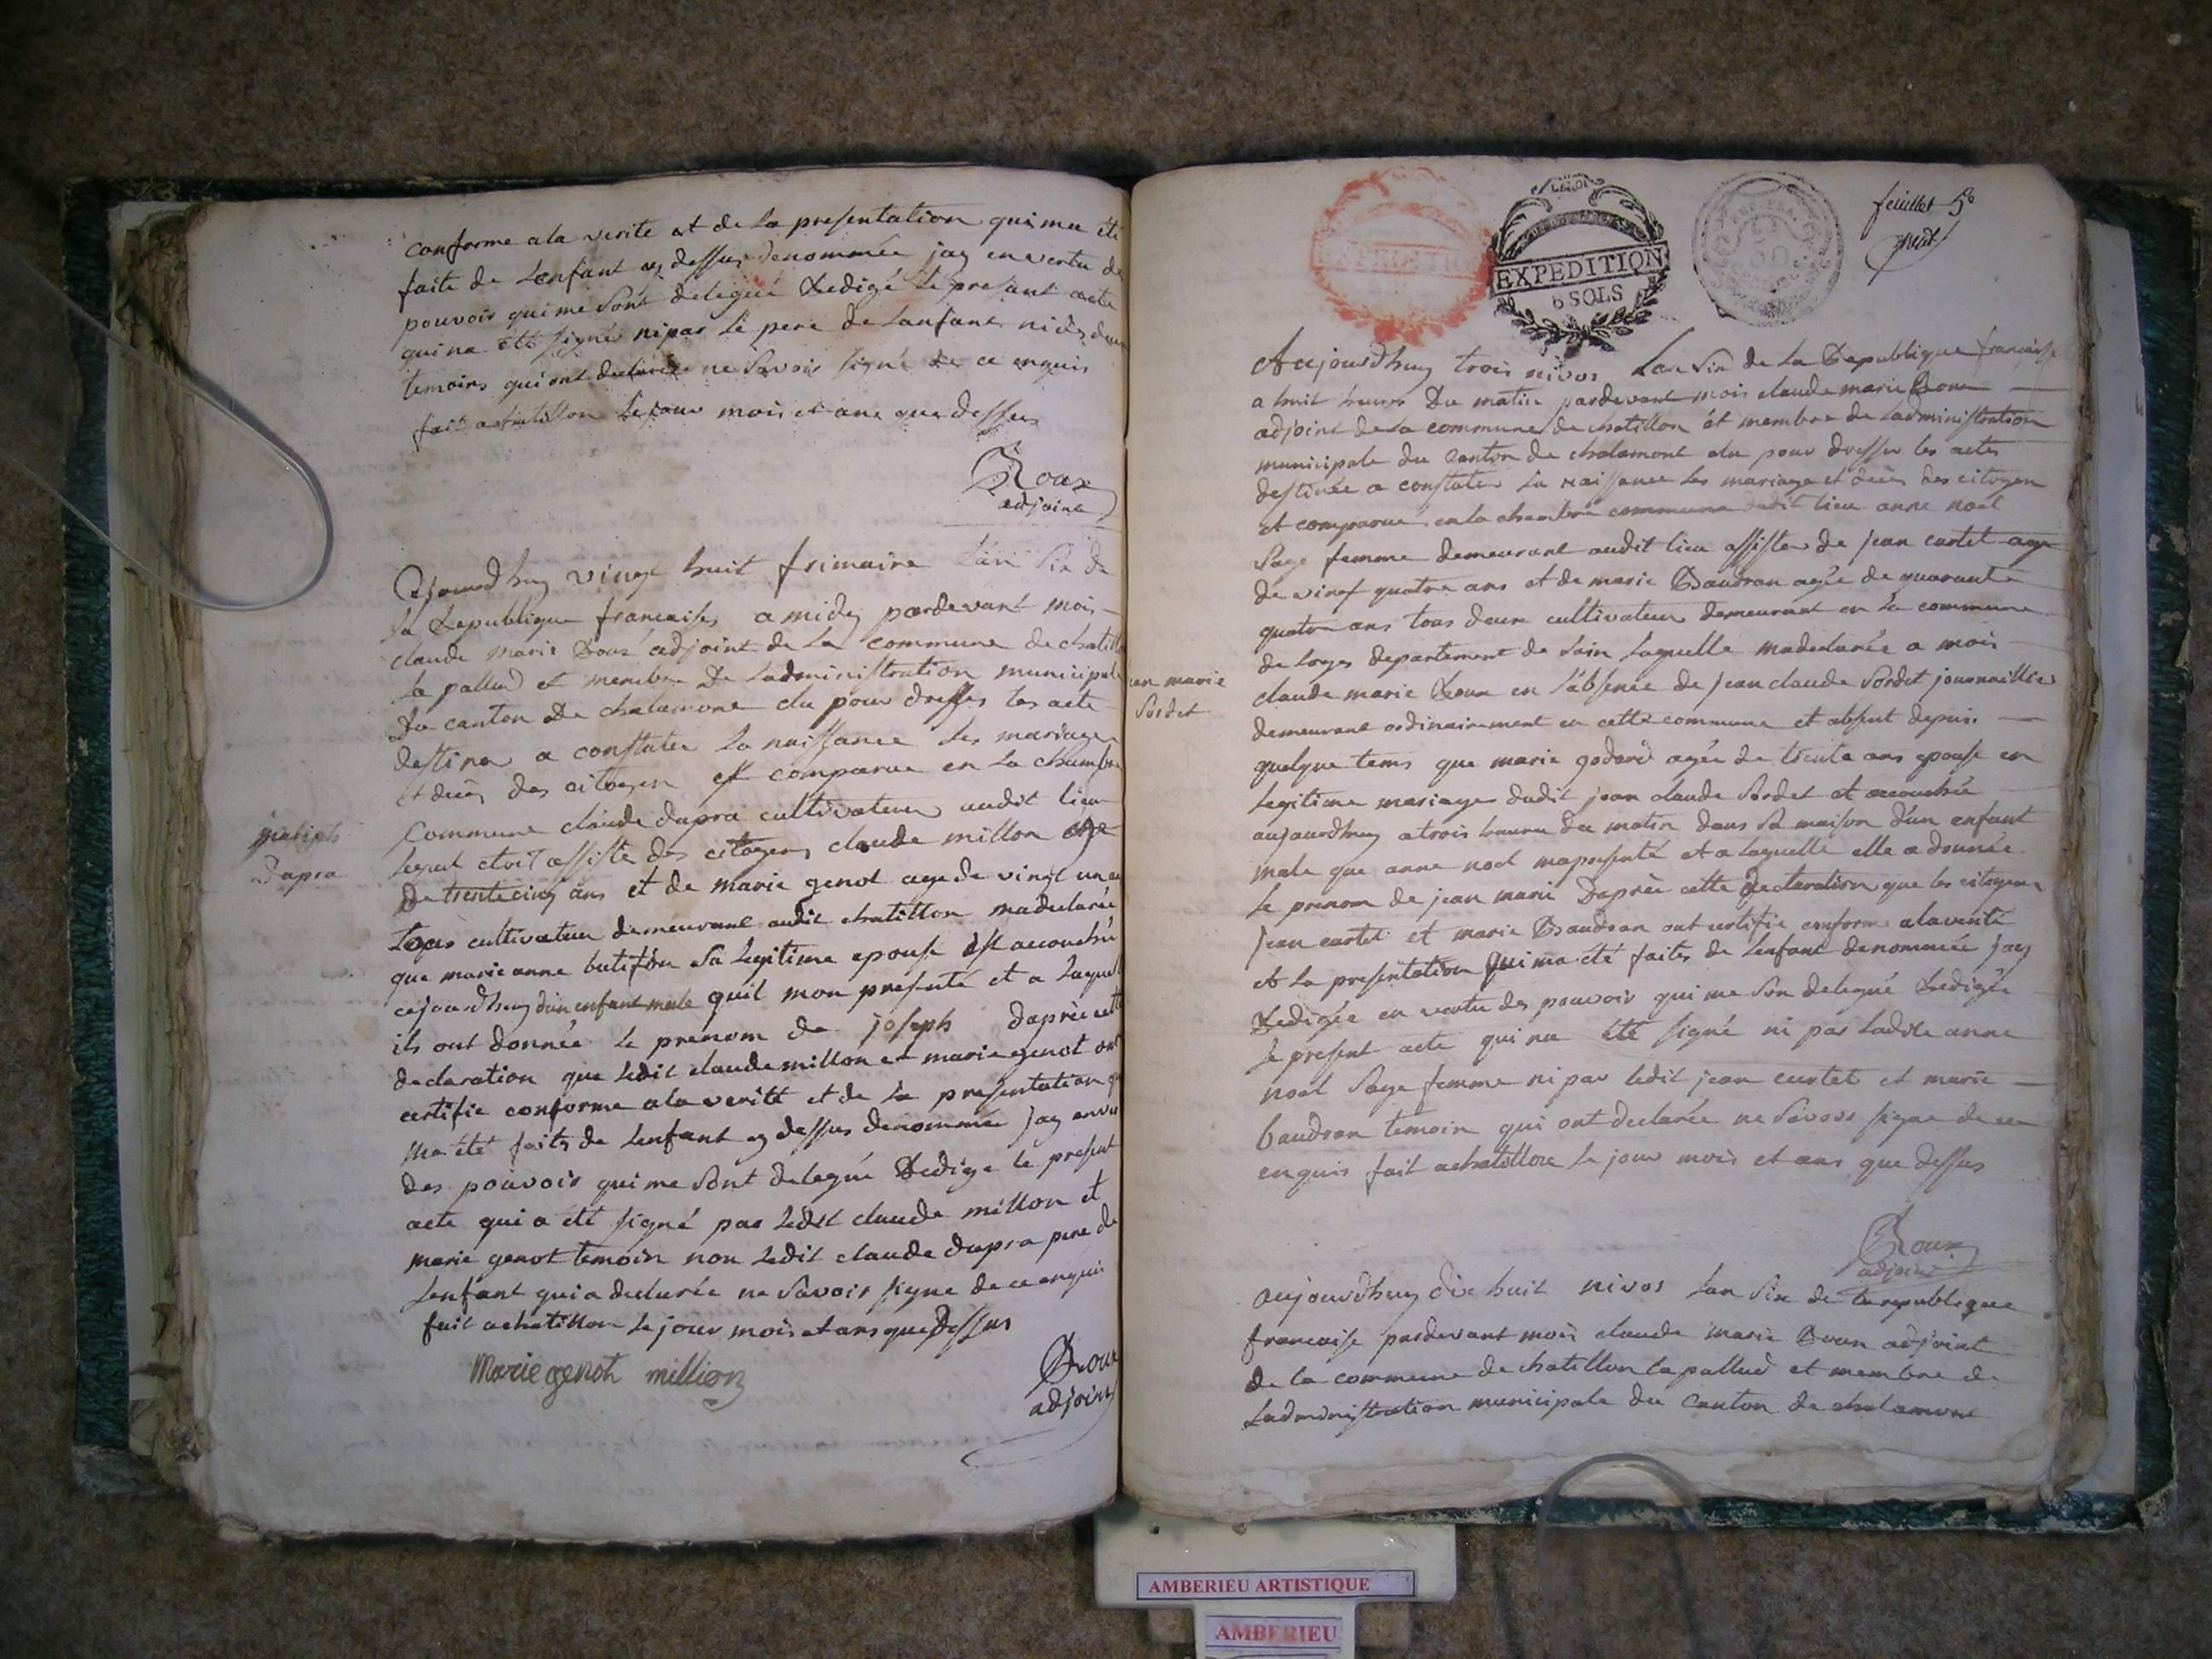 conforme a la verite et de la presentation qui ma été
faite de Lenfant cy dessus denommée jay en vertu de
pouvoir qui me sont delegué Redigé Le presant acte
qui na été signé ni par Le pere de Lanfant ni des deux
temoins qui ont declarée ne savoir signé de ce enquis
fait a chatillon le jour mois et ans que dessus
Roux
adjoint
vingt huit frimaire Lan six de
La Republique francaise, a midy pardevant mois
claude marie Roux adjoint de La commune de chatill
la pallud et membre De Ladministration municipale
Du canton De chalamont elu pour dresser les acte
destiner a constater La naissance Les mariages
et decès des citoyen est comparue en La chambre
Commune claude dupra cultivateur audit lieu
Lequel etoit assiste des citoyens claude millon age
De trente cinq ans et de marie genot age de vingt un an
tous cultivateur demeurant audit chatillon ma declarée
que marie anne butifon sa Legitime epouse est accouchée
cejourdhuy dun enfant male quil mon presenté et a Laquel
ils ont donnée Le prenom de joseph daprès cette
declaration que Ledit claude millon et marie genot ont
certifie conforme a la verité et de La presentation qui
ma été faite de Lenfant cy dessus denommée jay en vertu
des pouvoir qui me sont delegué Redigé le present
acte qui a été signé par Ledit claude millon et
marie genot temoin non Ledit claude dupra pere de
Lenfant qui a declarée ne savoir signe de ce enquis
fait a chatillon Le jour mois et ans que dessus
Marie genoh million
Roux
adjoint
joseph
Dupra
feuillet 5e
EXPEDITION
6 SOLS
Aujourdhuy trois nivos Lan six de la Republique francaise
a huit heures Du matin pardevant mois claude marie Roux
adjoint de La commune de chatillon et membre de Ladministration
municipale du Canton de chalamont elu pour dresser les actes
destinée a constater La naissance Les mariage et decès des citoyen
et comparue en la chambre commune dudit lieu anne noel
Sage femme demeurant audit lieu assister de jean curtet age
de vingt quatre ans et de marie Baudran agée de quarante
quatre ans tous deux cultivateur demeurant en La commune
de Loyes departement de Lain Laquelle ma declarée a mois
claude marie Roux en L'absence de jean claude Sordet journaillier
demeurant ordinairement en cette commune et absent depuis
quelque tems que marie godard agée de trente ans epouse en
Legitime mariage dudit jean claude Sordet et accouchée
aujourdhuy a trois heures du matin dans sa maison d'un enfant
male que anne noel ma presenté et a Laquelle elle a donnée
Le prenom de jean marie Daprès cette declaration que les citoyens
jean curtet et marie Baudran ont certifie conforme a la verité
et La presentation qui ma été faite de Lenfant denommée jay
Redigée en vertu des pouvoir qui me son delegué Redigée
Le present acte qui na été signé ni par Ladite anne
noel Sage femme ni par ledit jean curtet et marie
baudran temoin qui ont declarée ne savoir signe de ce
enquis fait a chatillon Le jour mois et ans que dessus
Roux
adjoint
an marie
Sordet
aujourdhuy dix huit nivos Lan Six de La republique
francaise pardevant mois claude marie Roux adjoint
de la commune de chatillon la pallud et membre de
Ladministration municipale du Canton de chalamont
AMBERIEU ARTISTIQUE
AMBERIEU